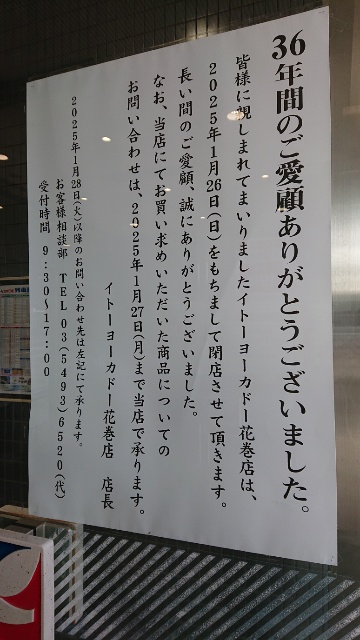 36年間のご愛顧ありがとうございました。
皆様に親しまれてまいりましたイトーヨーカドー花巻店は、
2025年1月26日(日)をもちまして閉店させて頂きます。
長い間のご愛顧、誠にありがとうございました。
なお、当店にてお買い求めいただいた商品についての
お問い合わせは、2025年1月27日(月)まで当店で承ります。
イトーヨーカドー花巻店 店長
2025年1月28日(火)以降のお問い合わせ先は左記にて承ります。
お客様相談部 TEL 03(5493)6520(代)
受付時間 9:30~17:00